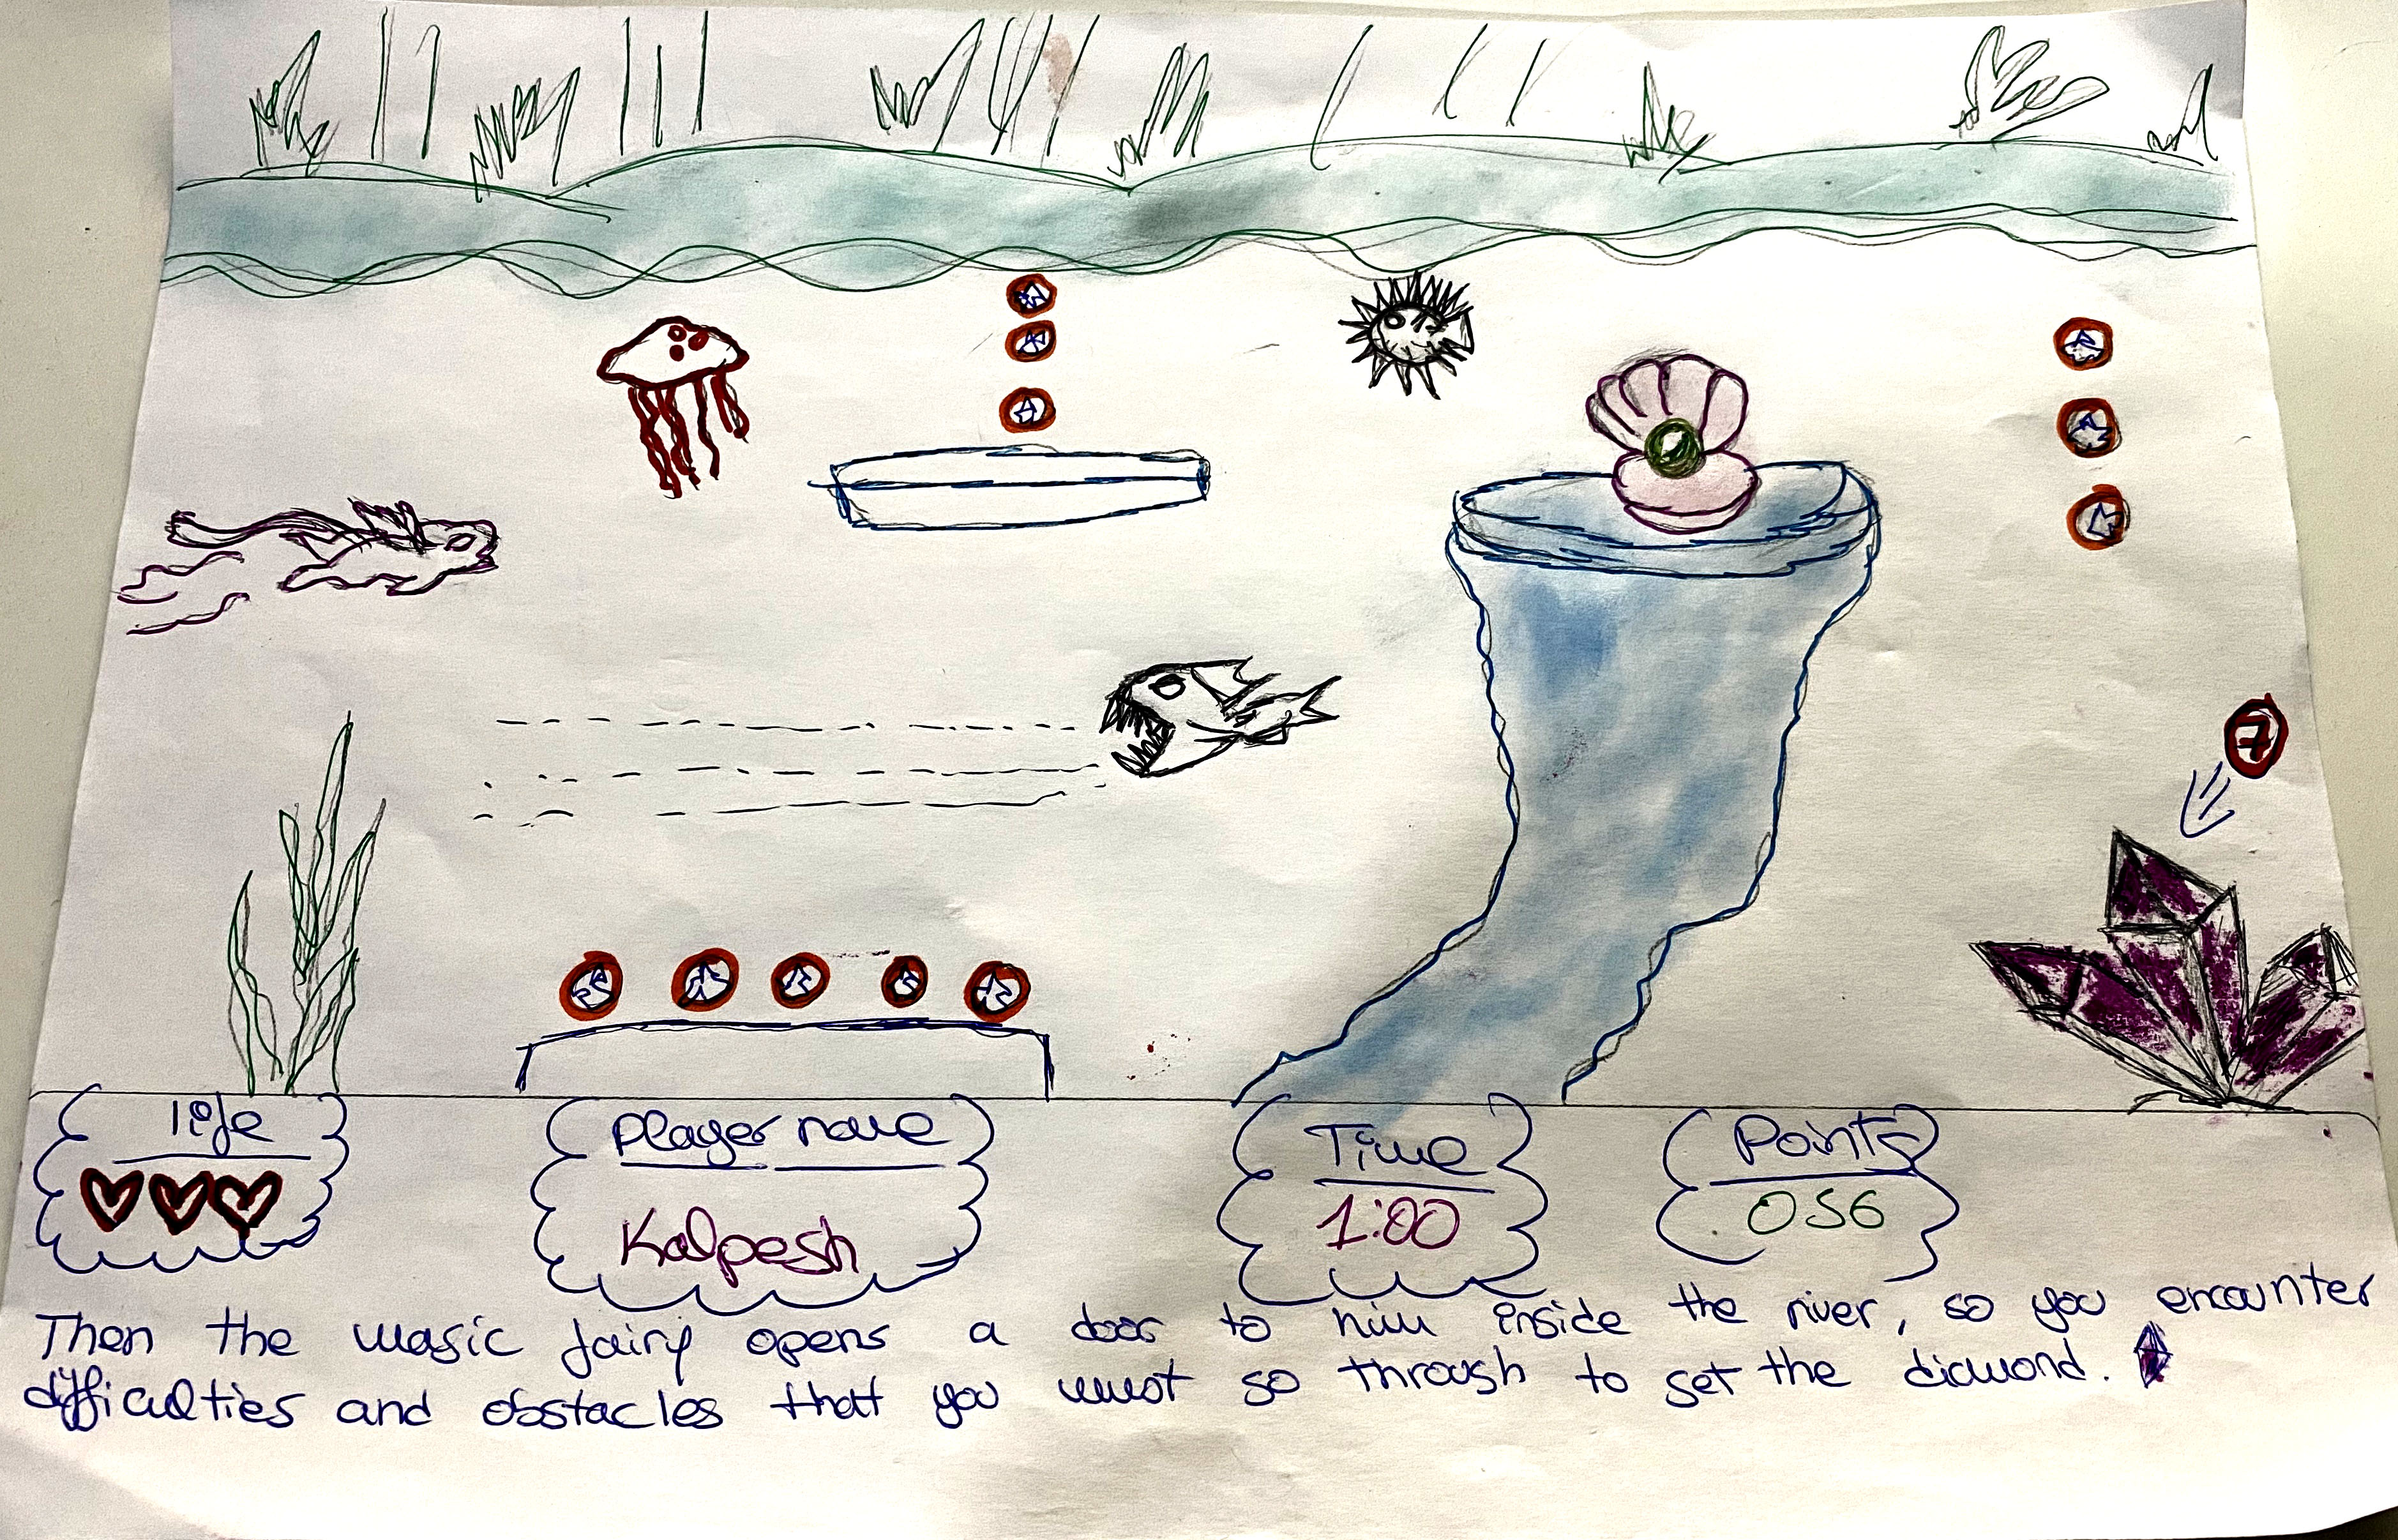 7
life
Player name
Time
Points
Kalpesh
1:00
056
Then the magic fairy opens a door to him inside the river, so you encounter
difficulties and obstacles that you must go through to get the diamond.